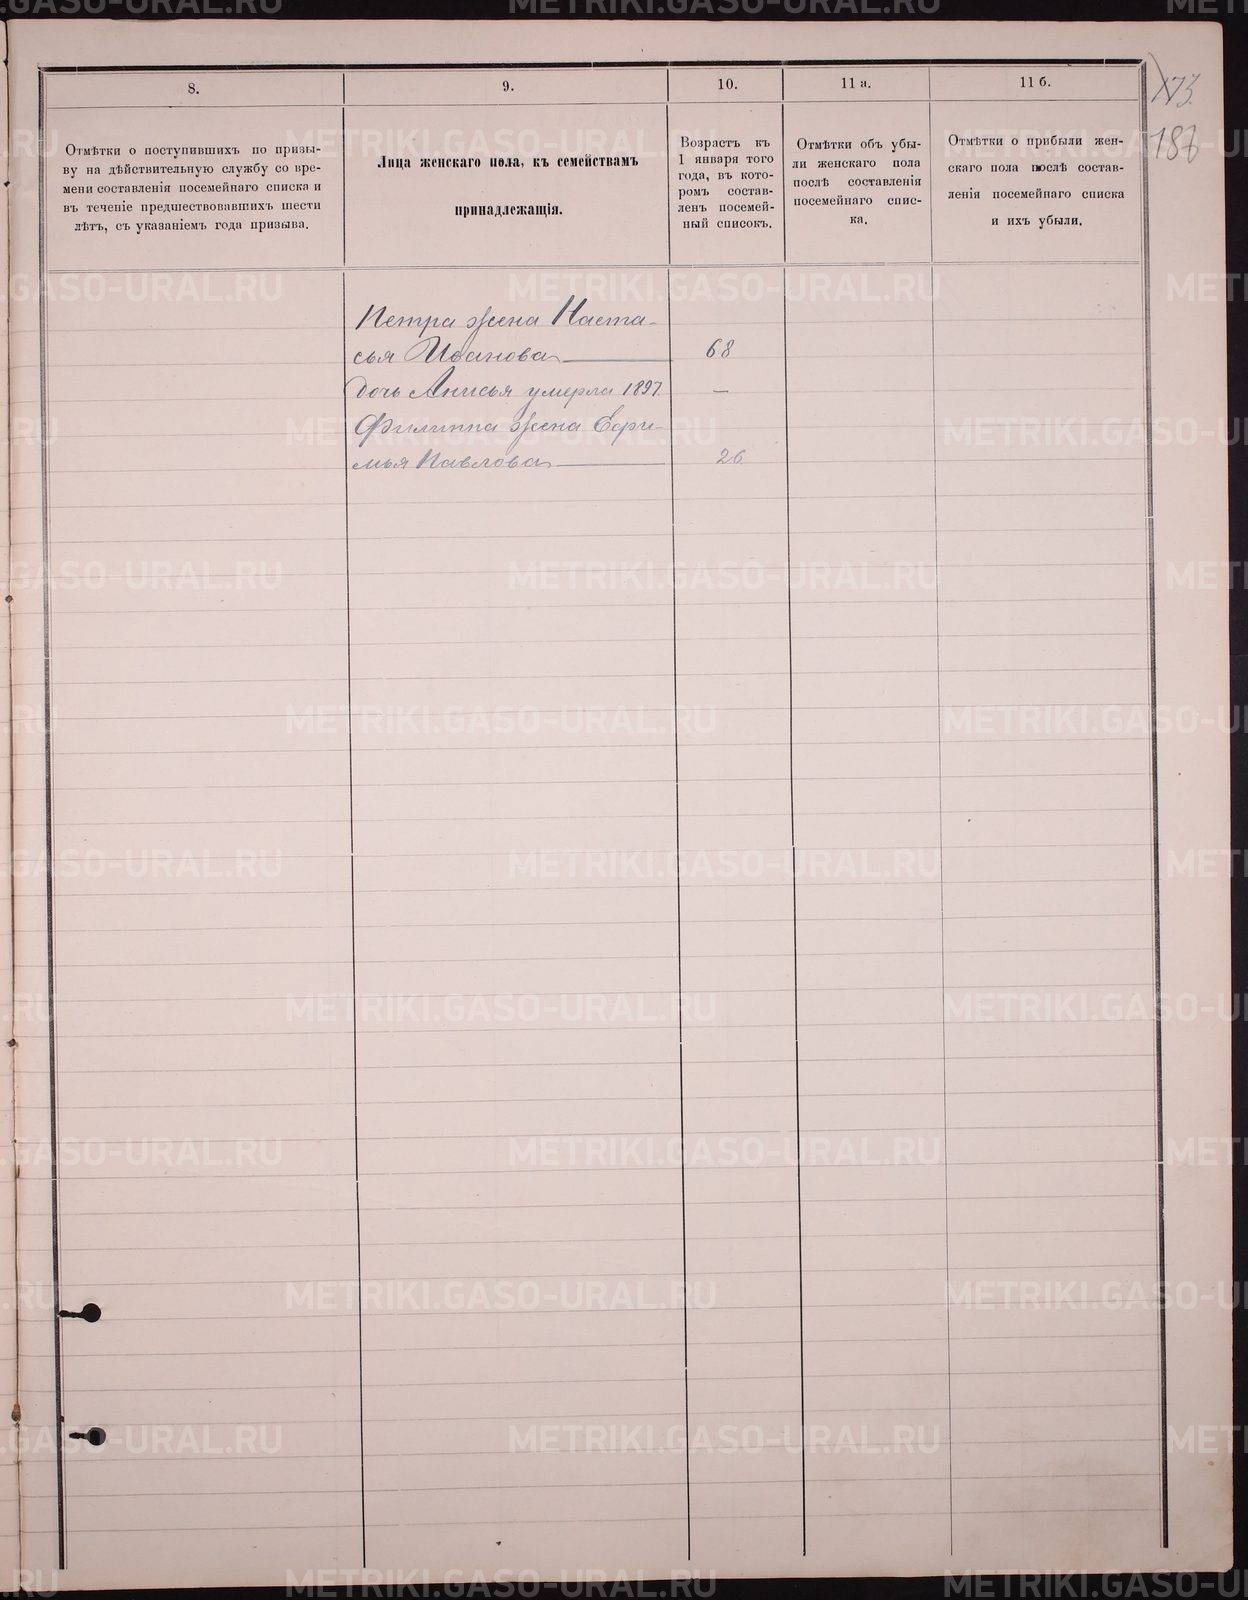 173.
186
8.
9.
10.
11 а.
11 б.
Отмѣтки о поступившихъ по призы-
ву на дѣйствительную службу со вре-
мени составленія посемейнаго списка и
въ теченіе предшествовавшихъ шести
лѣтъ, съ указаніемъ года призыва.
Лица женскаго пола, къ семействамъ
принадлежащія.
Возрастъ къ
1 января того
года, въ кото-
ромъ состав-
ленъ посемей-
ный списокъ.
Отмѣтки объ убы-
ли женскаго пола
послѣ составленія
посемейнаго спис-
ка.
Отмѣтки о прибыли жен-
скаго пола послѣ состав-
ленія посемейнаго списка
и ихъ убыли.
Петра жена Наста-
сья Иванова 68
дочь Анисья умерла 1897. —
Филиппа жена Ефи-
мья Павлова 26.
METRIKI.GASO-URAL.RU